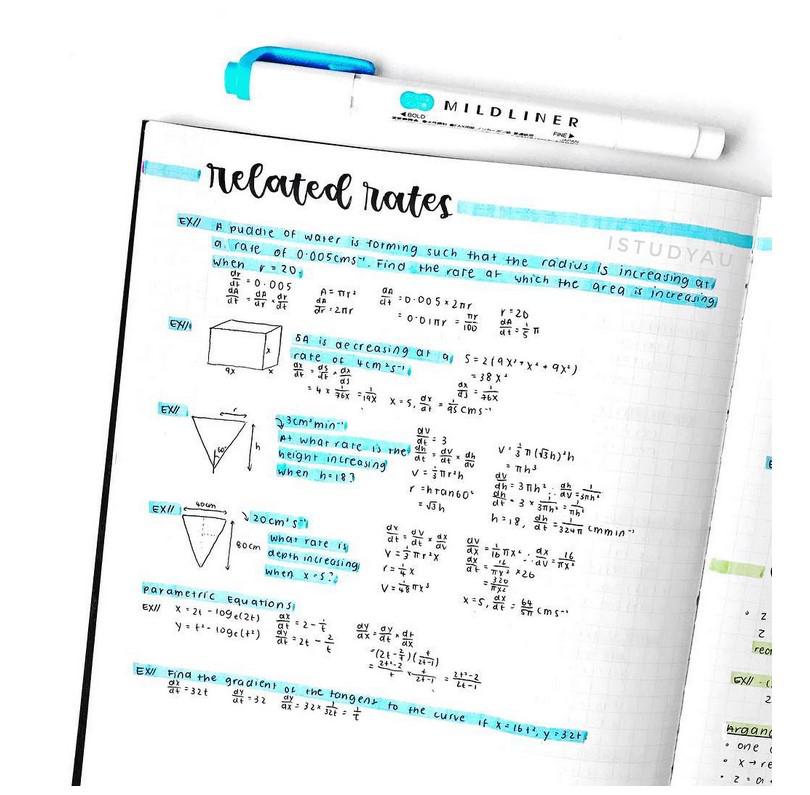 MILDLINER
◄BOLD
FINE►
JAPAN
related rates
ISTUDYAU
EX// A puddle of water is forming such that the radius is increasing at
a rate of 0.005cms⁻¹. Find the rate at which the area is increasing
when r = 20.
dr/dt = 0.005
dA/dt = dA/dr · dr/dt
A = πr²
dA/dr = 2πr
dA/dt = 0.005 × 2πr
= 0.01πr = πr/100
r = 20
dA/dt = 1/5 π
EX//
9x
x
x
SA is decreasing at a
rate of 4cm²s⁻¹
dx/dt = ds/dt · dx/ds
= 4 × 1/76x = 1/19x
x = 5, dx/dt = 1/95 cms⁻¹
S = 2(9x² + x² + 9x²)
= 38x²
dx/ds = 1/76x
EX//
r
h
60°
3cm³min⁻¹
At what rate is the
height increasing
when h = 18?
dV/dt = 3
dh/dt = dV/dt × dh/dV
V = 1/3 πr²h
r = htan60°
= √3h
V = 1/3 π(√3h)²h
= πh³
dV/dh = 3πh² ∴ dh/dV = 1/3πh²
dh/dt = 3 × 1/3πh² = 1/πh²
h = 18, dh/dt = 1/324π cmmin⁻¹
EX//
40cm
80cm
20cm³s⁻¹
what rate is
depth increasing
when x = 5?
dx/dt = dV/dt × dx/dV
V = 1/3 πr²x
r = 1/4 x
V = 1/48 πx³
dV/dx = 1/16 πx² ∴ dx/dV = 16/πx²
dx/dt = 16/πx² × 20
= 320/πx²
x = 5, dx/dt = 64/5π cms⁻¹
Parametric Equations
EX// x = 2t − logₑ(2t)
y = t² − logₑ(t²)
dx/dt = 2 − 1/t
dy/dt = 2t − 2/t
dy/dx = dy/dt × dt/dx
= (2t − 2/t)(t/2t−1)
= 2t²−2/t × t/2t−1 = 2t²−2/2t−1
EX// Find the gradient of the tangent to the curve if x = 16t², y = 32t
dx/dt = 32t
dy/dt = 32
dy/dx = 32 × 1/32t = 1/t
EX//
Argand
• one
• x → re